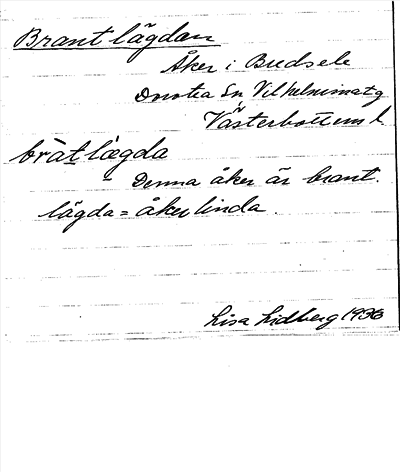 Brantlägdan
Åker i Budsele
Dorotea sn, Vilhelminatg
Västerbottens l
brà̱t læ̱gda
Denna åker är brant.
lägda = åkerlinda.
Lisa Lidberg 1936